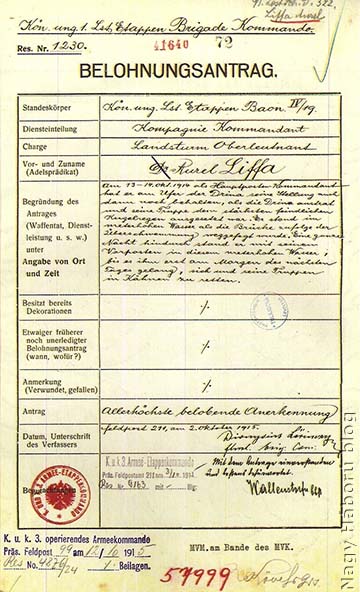 Kön. ung. 1. Lst. Etappen Brigade Kommando.
Res. Nr. 1230.
41640
72
Liffa Aurel
BELOHNUNGSANTRAG.
Standeskörper
Kön. ung. Lst. Etappen Baon. IV/19.
Diensteinteilung
Kompagnie Kommandant
Charge
Landsturm Oberleutnant
Vor- und Zuname
(Adelsprädikat)
Dr Aurel Liffa
Begründung des
Antrages
(Waffentat, Dienst-
leistung u. s. w.)
unter
Angabe von Ort
und Zeit
Am 13-14. Okt. 1914 als Hauptposten Kommandant
hat er am Ufer der Drina seine Stellung auch
dann noch behalten, als die Drina austrat
und seine Truppe den stärksten feindlichen
Kugelregen ausgesetzt war. Er stand in
meterhohem Wasser als die Brücke infolge der
Überschwemmung weggefegt wurde. Eine ganze
Nacht hindurch stand er mit seinen
Vorposten in diesem meterhohen Wasser,
bis es ihm erst am Morgen des nächsten
Tages gelang, sich und seine Truppen
in Kähnen zu retten.
Besitzt bereits
Dekorationen
·/·
Etwaiger früherer
noch unerledigter
Belohnungsantrag
(wann, wofür?)
·/·
Anmerkung
(Verwundet, gefallen)
·/·
Antrag
Allerhöchste belobende Anerkennung
Datum, Unterschrift
des Verfassers
Feldpost 211, am 2. Oktober 1915.
K. u. k. 3. Armee-Etappenkommando
Präs. Feldpostamt 211 am 3/10 1915
Res Nr. 9163 mit - Beilagen
Mit dem Antrage einverstanden
K. u. k. 3. operierendes Armeekommando
Präs. Feldpost 99 am 12/10 1915
Res No. 4276/24 1. Beilagen.
MVM. am Bande des MVK.
57999
Nagy Háború blog